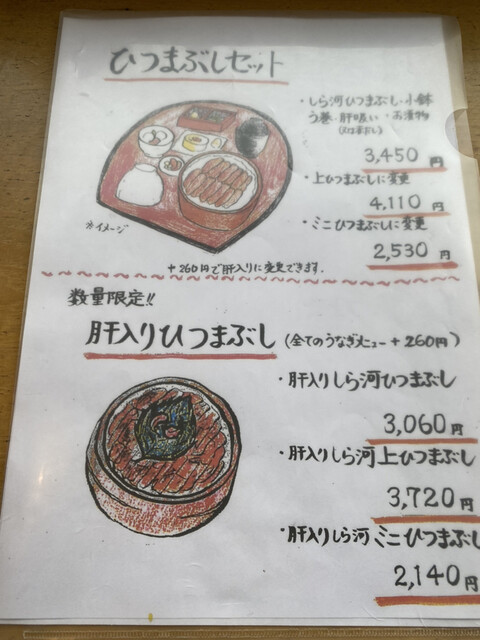 ひつまぶしセット
・しら河ひつまぶし・小鉢
う巻・肝吸い・お漬物
3,450円
・上ひつまぶしに変更
4,110円
・ミニひつまぶしに変更
2,530円
※イメージ
+260円で肝入りに変更できます.
数量限定!!
肝入りひつまぶし (全てのうなぎメニュー +260円)
・肝入りしら河ひつまぶし
3,060円
・肝入りしら河上ひつまぶし
3,720円
・肝入りしら河ミニひつまぶし
2,140円